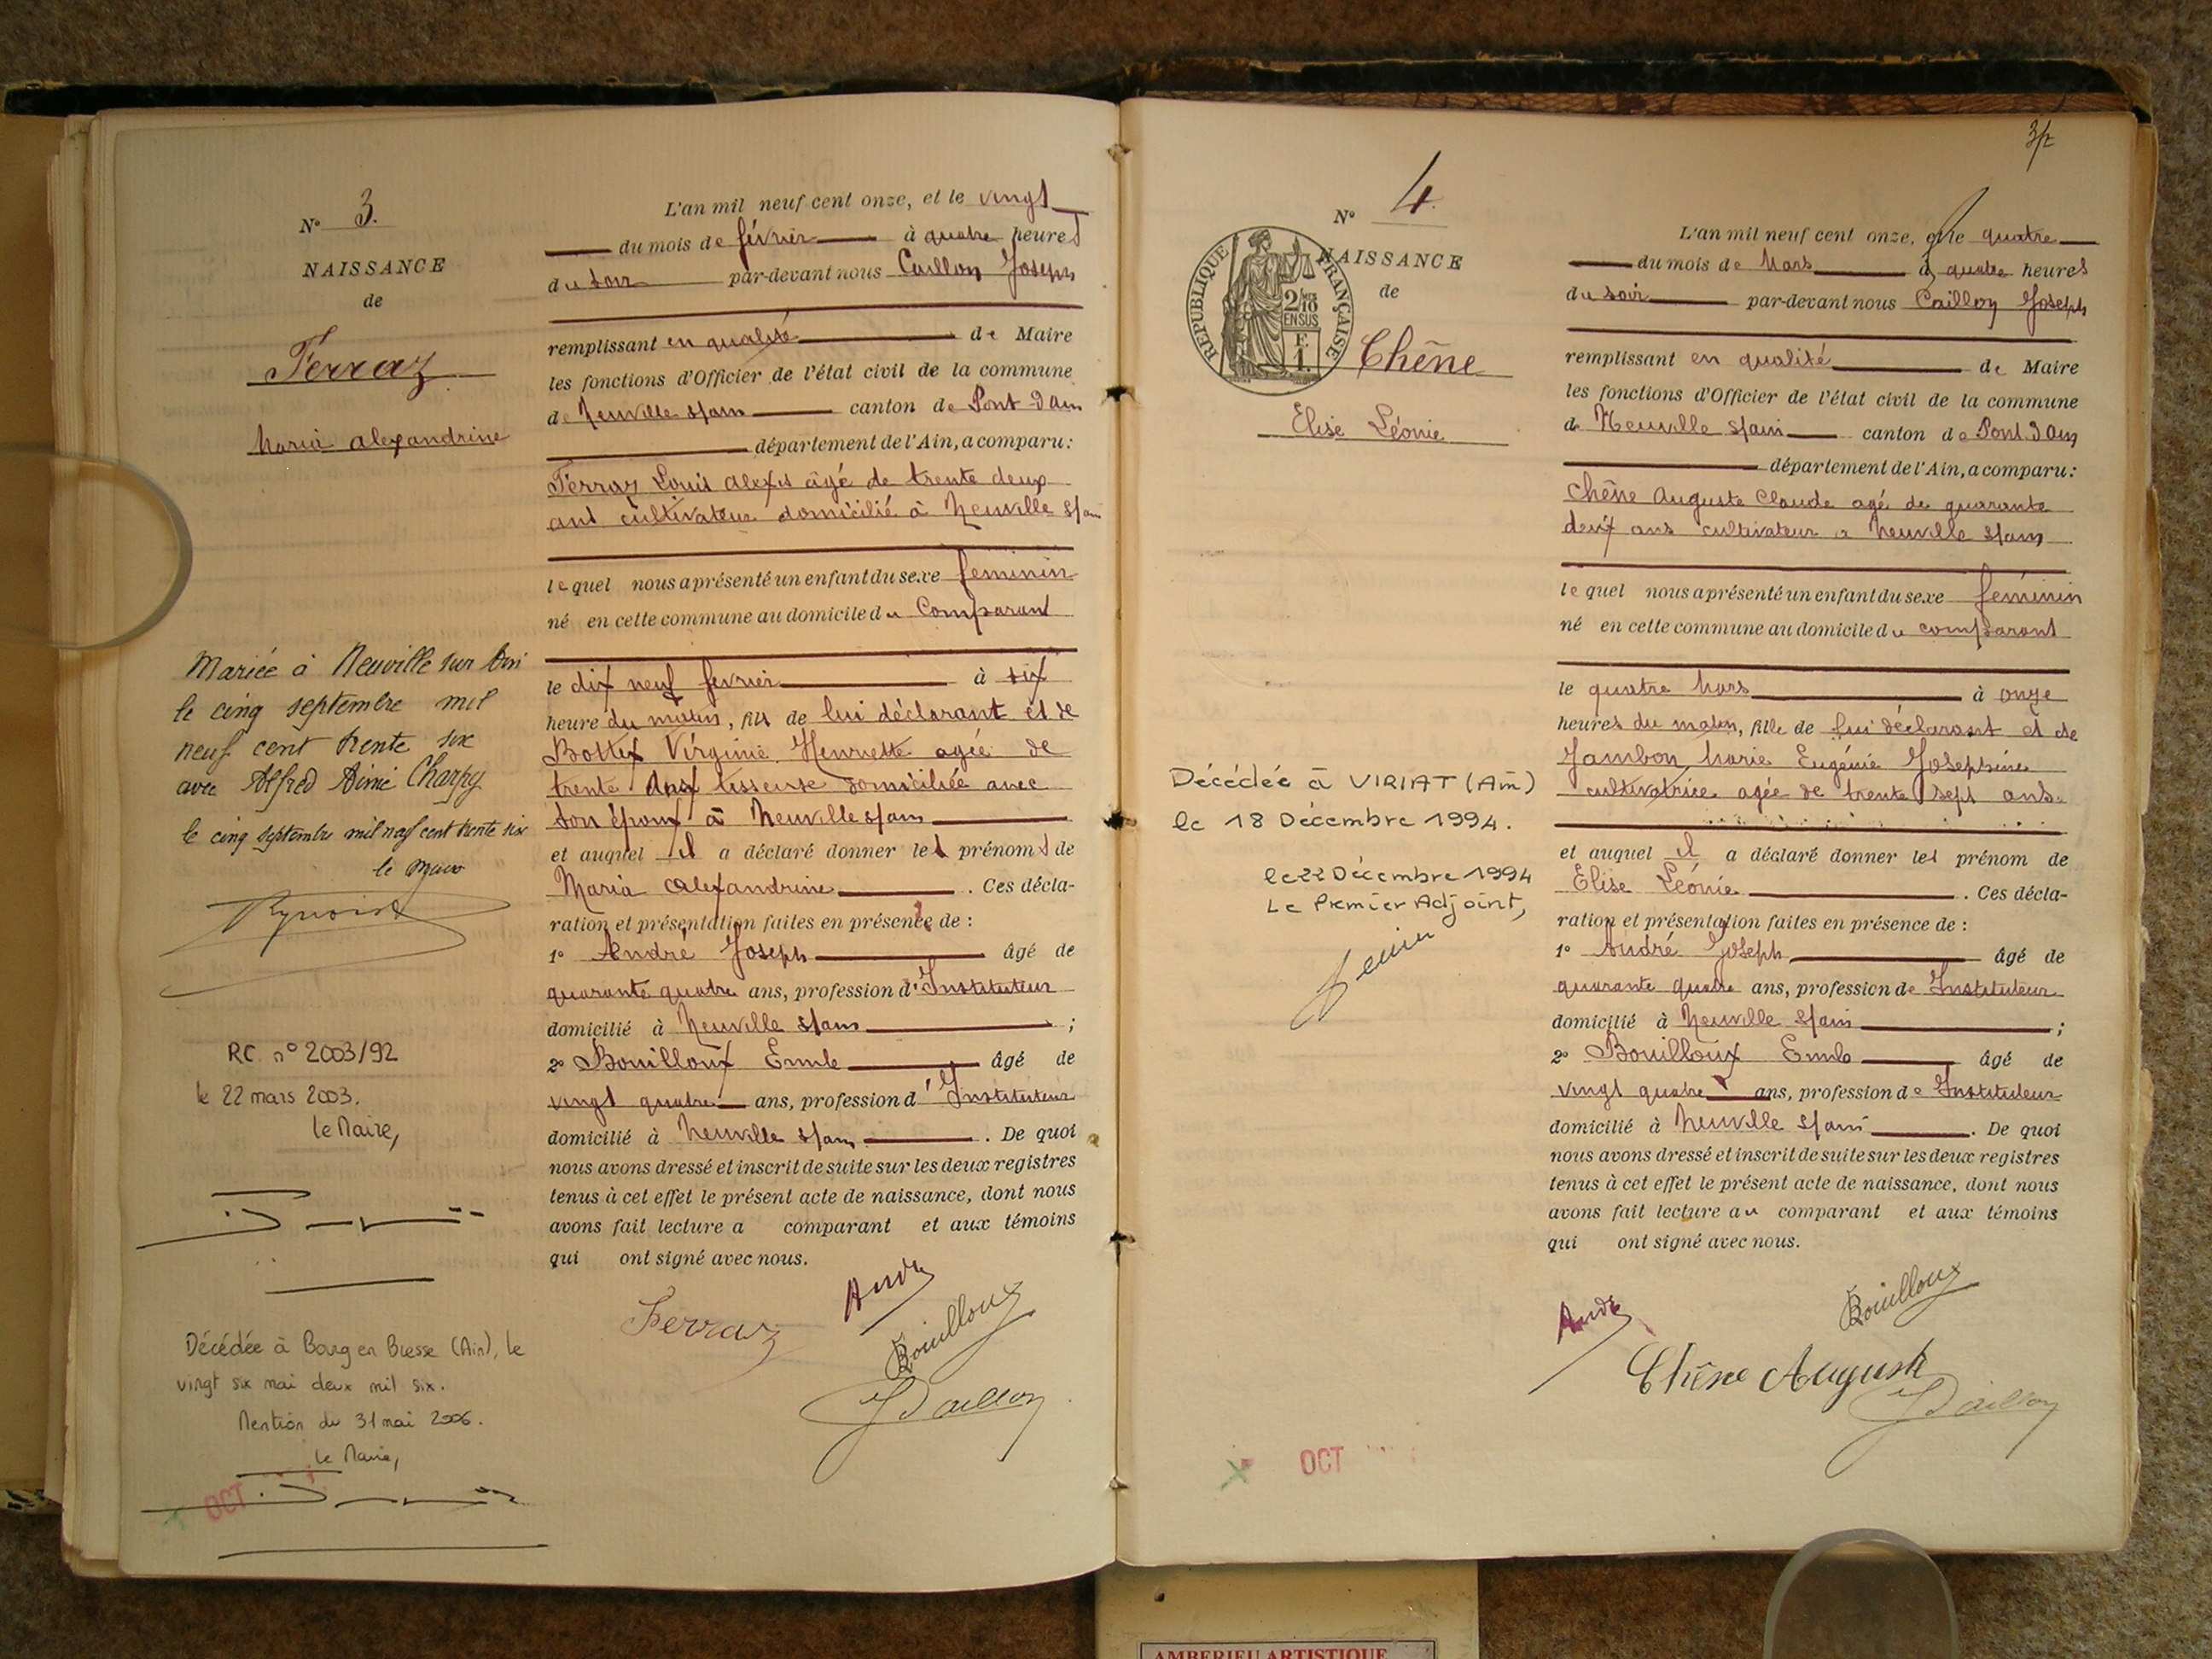 N° 3.
NAISSANCE
de
Ferraz
Maria Alexandrine
Mariée à Neuville sur Ain
le cinq septembre mil
neuf cent trente six
avec Alfred Aimé Charpy
le cinq septembre mil neuf cent trente six
le Maire
RC n° 2003/92
le 22 mars 2003.
le Maire,
Décédée à Bourg en Bresse (Ain), le
vingt six mai deux mil six.
Mention du 31 mai 2006.
le Maire,
OCT
L'an mil neuf cent onze, et le vingt
du mois de février à quatre heures
du soir par-devant nous Caillon Joseph
remplissant en qualité de Maire
les fonctions d'Officier de l'état civil de la commune
de Neuville s/ain canton de Pont d'Ain
département de l'Ain, a comparu:
Ferraz Louis Alexis âgé de trente deux
ans cultivateur domicilié à Neuville s/ain
lequel nous a présenté un enfant du sexe féminin
né en cette commune au domicile du Comparant
le dix neuf février à six
heure du matin, fille de lui déclarant et de
Bottex Virginie Henriette agée de
trente ans tisseuse domiciliée avec
son époux à Neuville s/ain
et auquel il a déclaré donner les prénoms de
Maria Alexandrine. Ces décla-
ration et présentation faites en présence de :
1° André Joseph âgé de
quarante quatre ans, profession d'Instituteur
domicilié à Neuville s/ain ;
2° Bouilloux Emile âgé de
vingt quatre ans, profession d'Instituteur
domicilié à Neuville s/ain. De quoi
nous avons dressé et inscrit de suite sur les deux registres
tenus à cet effet le présent acte de naissance, dont nous
avons fait lecture a comparant et aux témoins
qui ont signé avec nous.
André
Ferraz
Bouilloux
J Caillon
3/2
N° 4.
NAISSANCE
de
RÉPUBLIQUE FRANÇAISE
2/10
EN SUS
F.
1.
Chêne
Elise Léonie
Décédée à VIRIAT (Ain)
le 18 Décembre 1994.
le 22 Décembre 1994
Le Premier Adjoint,
OCT
L'an mil neuf cent onze, et le quatre
du mois de Mars à quatre heures
du soir par-devant nous Caillon Joseph
remplissant en qualité de Maire
les fonctions d'Officier de l'état civil de la commune
de Neuville s/ain canton de Pont d'Ain
département de l'Ain, a comparu:
Chêne Auguste Claude agé de quarante
deux ans cultivateur à Neuville s/ain
lequel nous a présenté un enfant du sexe féminin
né en cette commune au domicile du comparant
le quatre Mars à onze
heures du matin, fille de lui déclarant et de
Jambon Marie Eugénie Joséphine
cultivatrice agée de trente sept ans.
et auquel il a déclaré donner les prénom de
Elise Léonie. Ces décla-
ration et présentation faites en présence de :
1° André Joseph âgé de
quarante quatre ans, profession de Instituteur
domicilié à Neuville s/ain ;
2° Bouilloux Emile âgé de
vingt quatre ans, profession de Instituteur
domicilié à Neuville s/ain. De quoi
nous avons dressé et inscrit de suite sur les deux registres
tenus à cet effet le présent acte de naissance, dont nous
avons fait lecture au comparant et aux témoins
qui ont signé avec nous.
André
Bouilloux
Chêne Auguste
J Caillon
AMBERIEU ARTISTIQUE